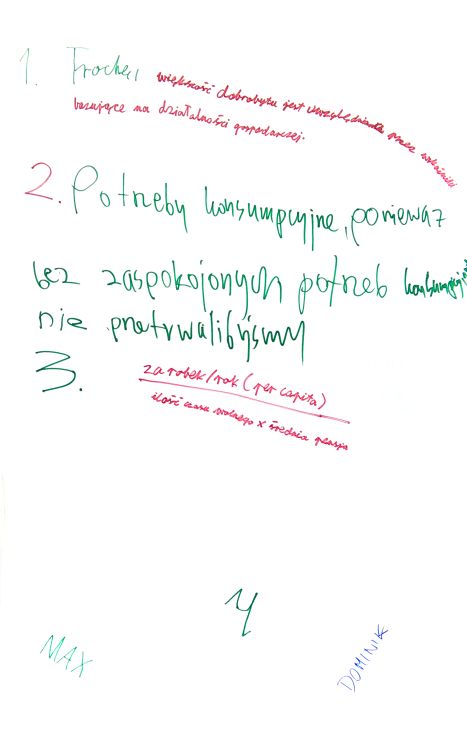 1. Troche, większość dobrobytu jest uwzględniana przez wskaźniki
bazujące na działalności gospodarczej.
2. Potrzeby konsumpcyjne, ponieważ
bez zaspokojonych potrzeb konsumpcyjnych
nie przetrwalibyśmy
3. zarobek/rok (per capita)
ilość czasu wolnego x średnia pensja
4
MAX
DOMINIK